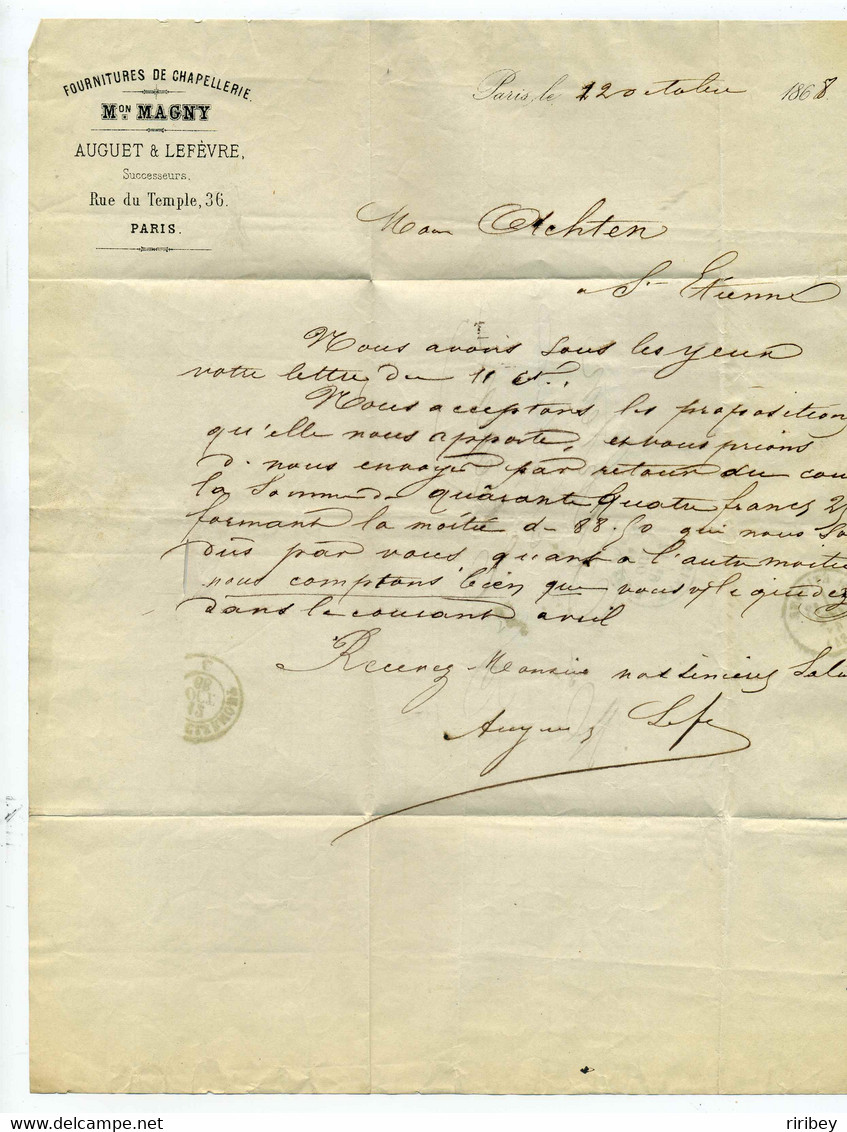 FOURNITURES DE CHAPELLERIE.
Mon MAGNY
AUGUET & LEFÈVRE,
Successeurs,
Rue du Temple, 36.
PARIS.
Paris, le 12 octobre 1868
Achten
a St Etienne
Nous avons sous les yeux
votre lettre du 11 ct.
Nous acceptons les proposition
qu'elle nous apporte, et vous prions
d. nous envoyer par retour du cou
la somme de quarante quatre francs 25
formant la moitié de 88.50 qui nous so
dûs par vous, quant a l'autre moitié
nous comptons bien que vous
dans le courant avril
Recevez Monsieur nos sincères Salu
GRENOBLE
for-sale on delcampe.net
riribey